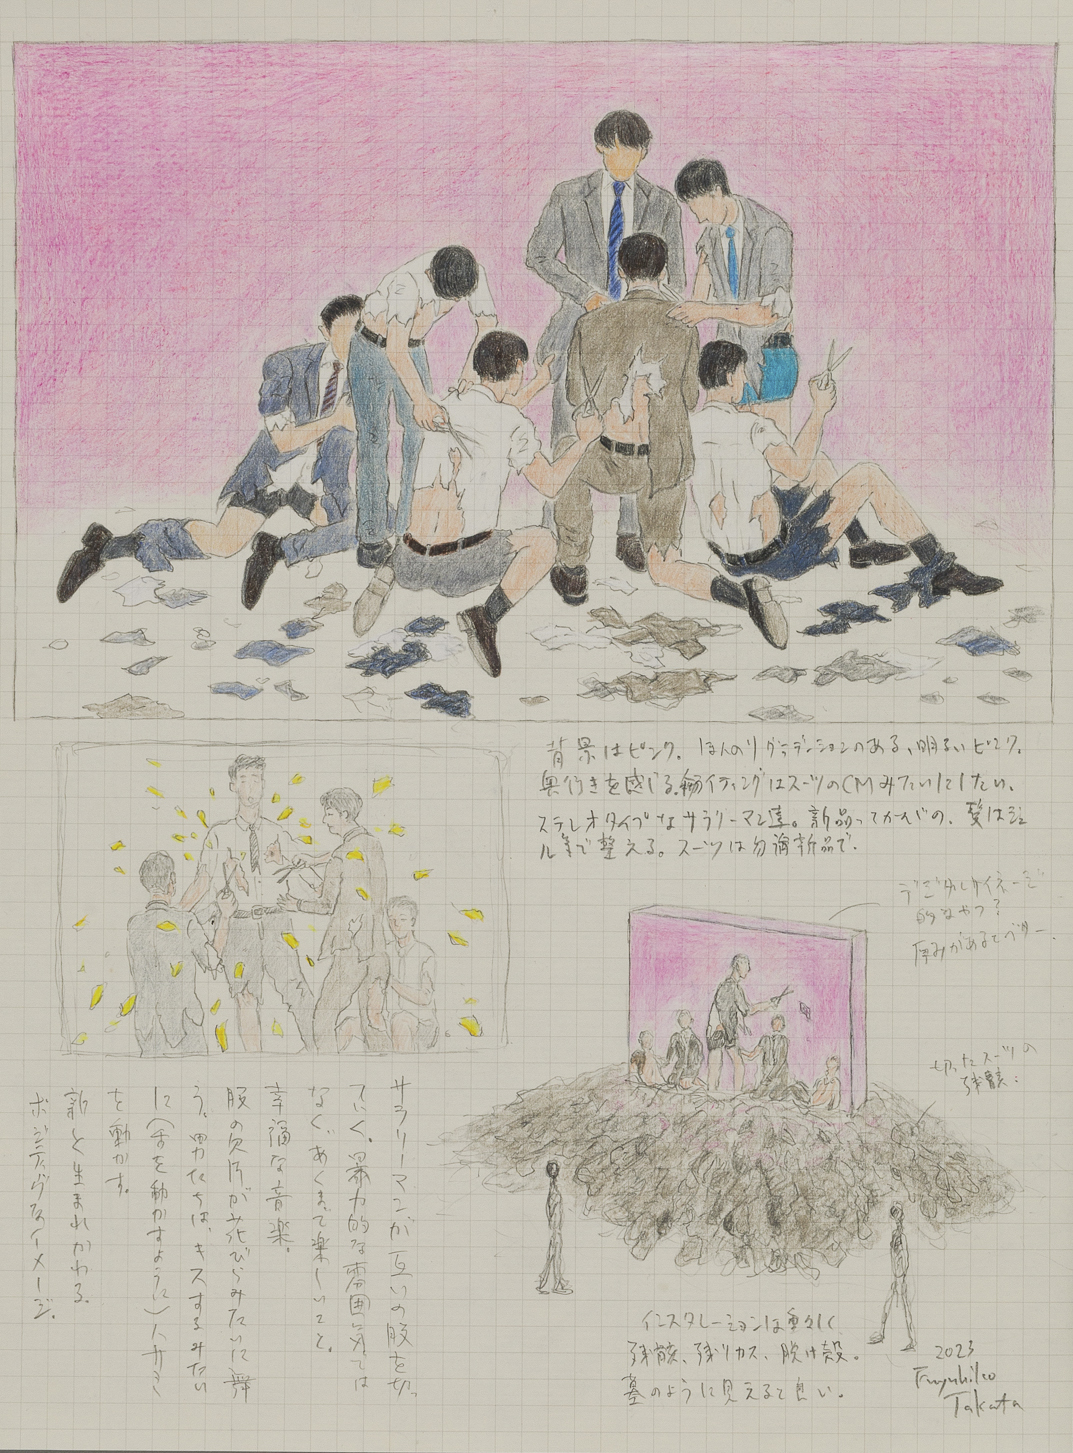 背景はピンク。ほんのりグラデーションのある、明るいピンク。
奥行きを感じる。ライティングはスーツのCMみたいにしたい。
ステレオタイプなサラリーマン達。新品ってかんじの、髪はジェ
ル等で整える。スーツは勿論新品で。
デジタルサイネージ
的なやつ?
厚みがあるとベター。
切ったスーツの
残骸。
サラリーマンが互いの服を切っ
ていく。暴力的な雰囲気では
なく、あくまで楽しいこと。
幸福な音楽。
服の欠片が花びらみたいに舞
う。男たちは、キスするみたい
に(舌を動かすように)ハサミ
を動かす。
新しく生まれかわる。
ポジティヴなイメージ。
インスタレーションは重々しく
残骸、残りカス、脱け殻。
墓のように見えると良い。
2023
Fuyuhiko
Takata